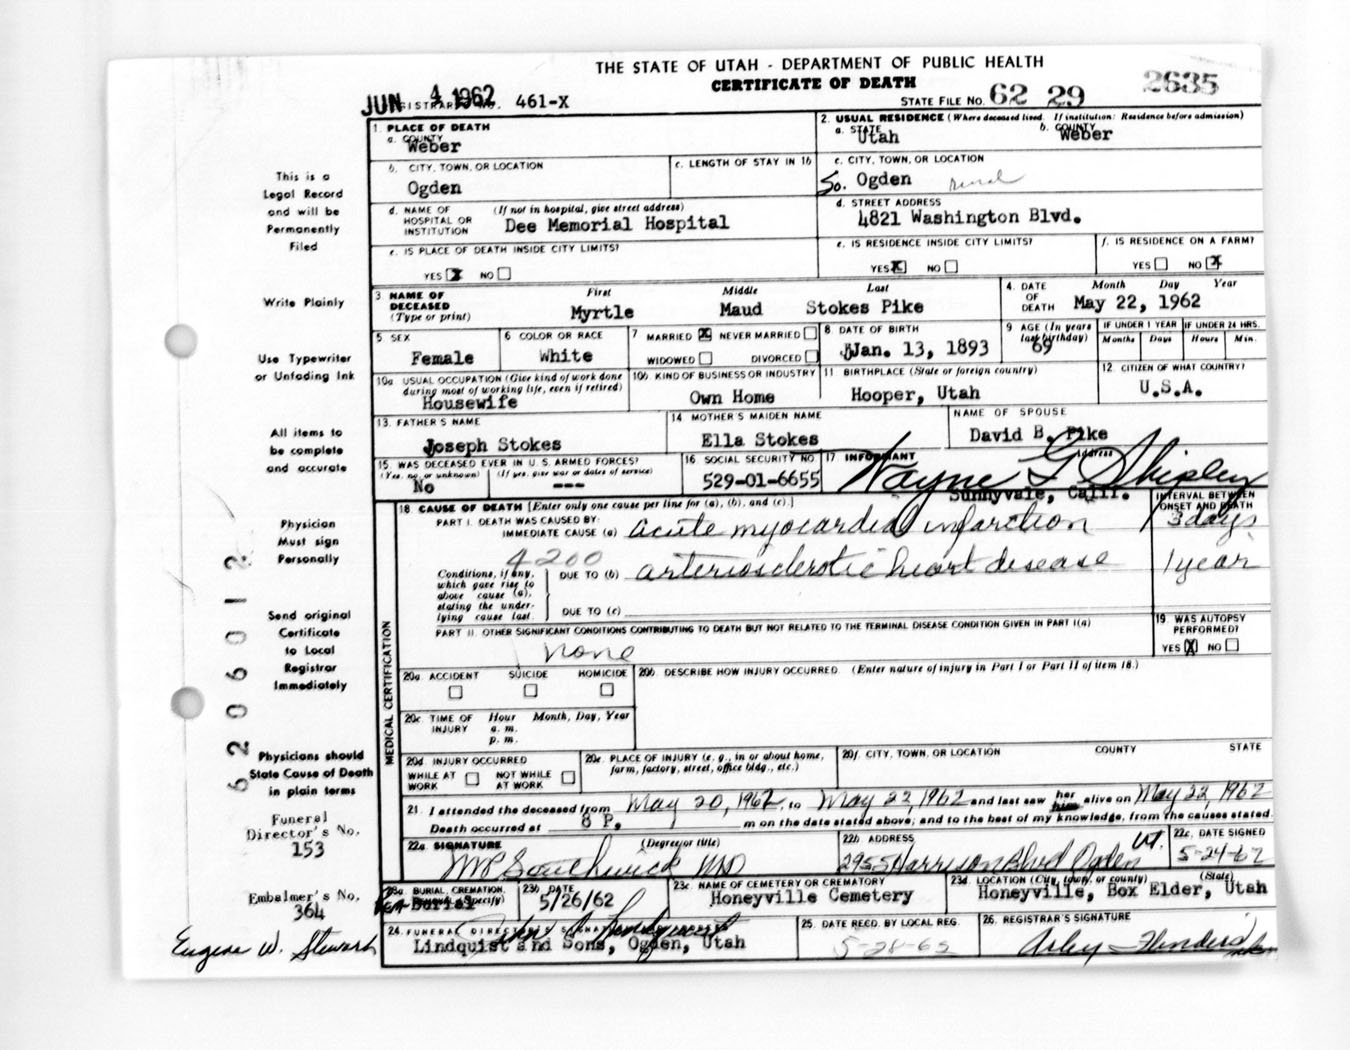 THE STATE OF UTAH - DEPARTMENT OF PUBLIC HEALTH
CERTIFICATE OF DEATH
2635
JUN 4 1962
REGISTRAR'S NO. 461-X
STATE FILE NO. 62 29
1. PLACE OF DEATH
a. COUNTY
Weber
2. USUAL RESIDENCE (Where deceased lived. If institution: Residence before admission)
a. STATE
Utah
b. COUNTY
Weber
b. CITY, TOWN, OR LOCATION
Ogden
c. LENGTH OF STAY IN 1b
c. CITY, TOWN, OR LOCATION
So. Ogden rural
d. NAME OF HOSPITAL OR INSTITUTION
(If not in hospital, give street address)
Dee Memorial Hospital
d. STREET ADDRESS
4821 Washington Blvd.
e. IS PLACE OF DEATH INSIDE CITY LIMITS?
YES X NO
e. IS RESIDENCE INSIDE CITY LIMITS?
YES X NO
f. IS RESIDENCE ON A FARM?
YES NO X
3 NAME OF DECEASED
(Type or print)
First Middle Last
Myrtle Maud Stokes Pike
4. DATE OF DEATH
Month Day Year
May 22, 1962
5 SEX
Female
6 COLOR OR RACE
White
7 MARRIED X NEVER MARRIED
WIDOWED DIVORCED
8 DATE OF BIRTH
Jan. 13, 1893
9 AGE (In years last birthday)
69
IF UNDER 1 YEAR
Months Days
IF UNDER 24 HRS.
Hours Min.
10a USUAL OCCUPATION (Give kind of work done during most of working life, even if retired)
Housewife
10b KIND OF BUSINESS OR INDUSTRY
Own Home
11 BIRTHPLACE (State or foreign country)
Hooper, Utah
12. CITIZEN OF WHAT COUNTRY?
U.S.A.
13. FATHER'S NAME
Joseph Stokes
14 MOTHER'S MAIDEN NAME
Ella Stokes
NAME OF SPOUSE
David B. Pike
15 WAS DECEASED EVER IN U. S. ARMED FORCES?
(Yes, no, or unknown) (If yes, give war or dates of service)
No ---
16 SOCIAL SECURITY NO.
529-01-6655
17 INFORMANT Address
Wayne G. Shipley
Sunnyvale, Calif.
18 CAUSE OF DEATH [Enter only one cause per line for (a), (b), and (c).]
INTERVAL BETWEEN ONSET AND DEATH
PART I. DEATH WAS CAUSED BY:
IMMEDIATE CAUSE (a) acute myocardial infarction 3 days
4200
Conditions, if any, which gave rise to above cause (a), stating the underlying cause last.
DUE TO (b) arteriosclerotic heart disease 1 year
DUE TO (c)
PART II. OTHER SIGNIFICANT CONDITIONS CONTRIBUTING TO DEATH BUT NOT RELATED TO THE TERMINAL DISEASE CONDITION GIVEN IN PART I(a)
none
19. WAS AUTOPSY PERFORMED?
YES X NO
MEDICAL CERTIFICATION
20a. ACCIDENT SUICIDE HOMICIDE
20b. DESCRIBE HOW INJURY OCCURRED. (Enter nature of injury in Part I or Part II of item 18.)
20c. TIME OF INJURY
Hour Month, Day, Year
a. m.
p. m.
20d. INJURY OCCURRED
WHILE AT WORK NOT WHILE AT WORK
20e. PLACE OF INJURY (e. g., in or about home, farm, factory, street, office bldg., etc.)
20f. CITY, TOWN, OR LOCATION COUNTY STATE
21. I attended the deceased from May 20, 1962, to May 22, 1962 and last saw her him alive on May 22, 1962
Death occurred at 8 P. m on the date stated above; and to the best of my knowledge, from the causes stated.
22a. SIGNATURE (Degree or title)
Southwick MD
22b. ADDRESS
2955 Harrison Blvd Ogden Ut.
22c. DATE SIGNED
5-24-62
23a. BURIAL, CREMATION, REMOVAL (Specify)
Burial
23b. DATE
5/26/62
23c. NAME OF CEMETERY OR CREMATORY
Honeyville Cemetery
23d. LOCATION (City, town, or county) (State)
Honeyville, Box Elder, Utah
24. FUNERAL DIRECTOR'S SIGNATURE
Lindquist and Sons, Ogden, Utah
25. DATE RECD. BY LOCAL REG.
5-28-62
26. REGISTRAR'S SIGNATURE
This is a
Legal Record
and will be
Permanently
Filed
Write Plainly
Use Typewriter
or Unfading Ink
All items to
be complete
and accurate
Physician
Must sign
Personally
Send original
Certificate
to Local
Registrar
Immediately
Physicians should
State Cause of Death
in plain terms
Funeral
Director's No.
153
Embalmer's No.
364
Eugene W. Steward
620601 2